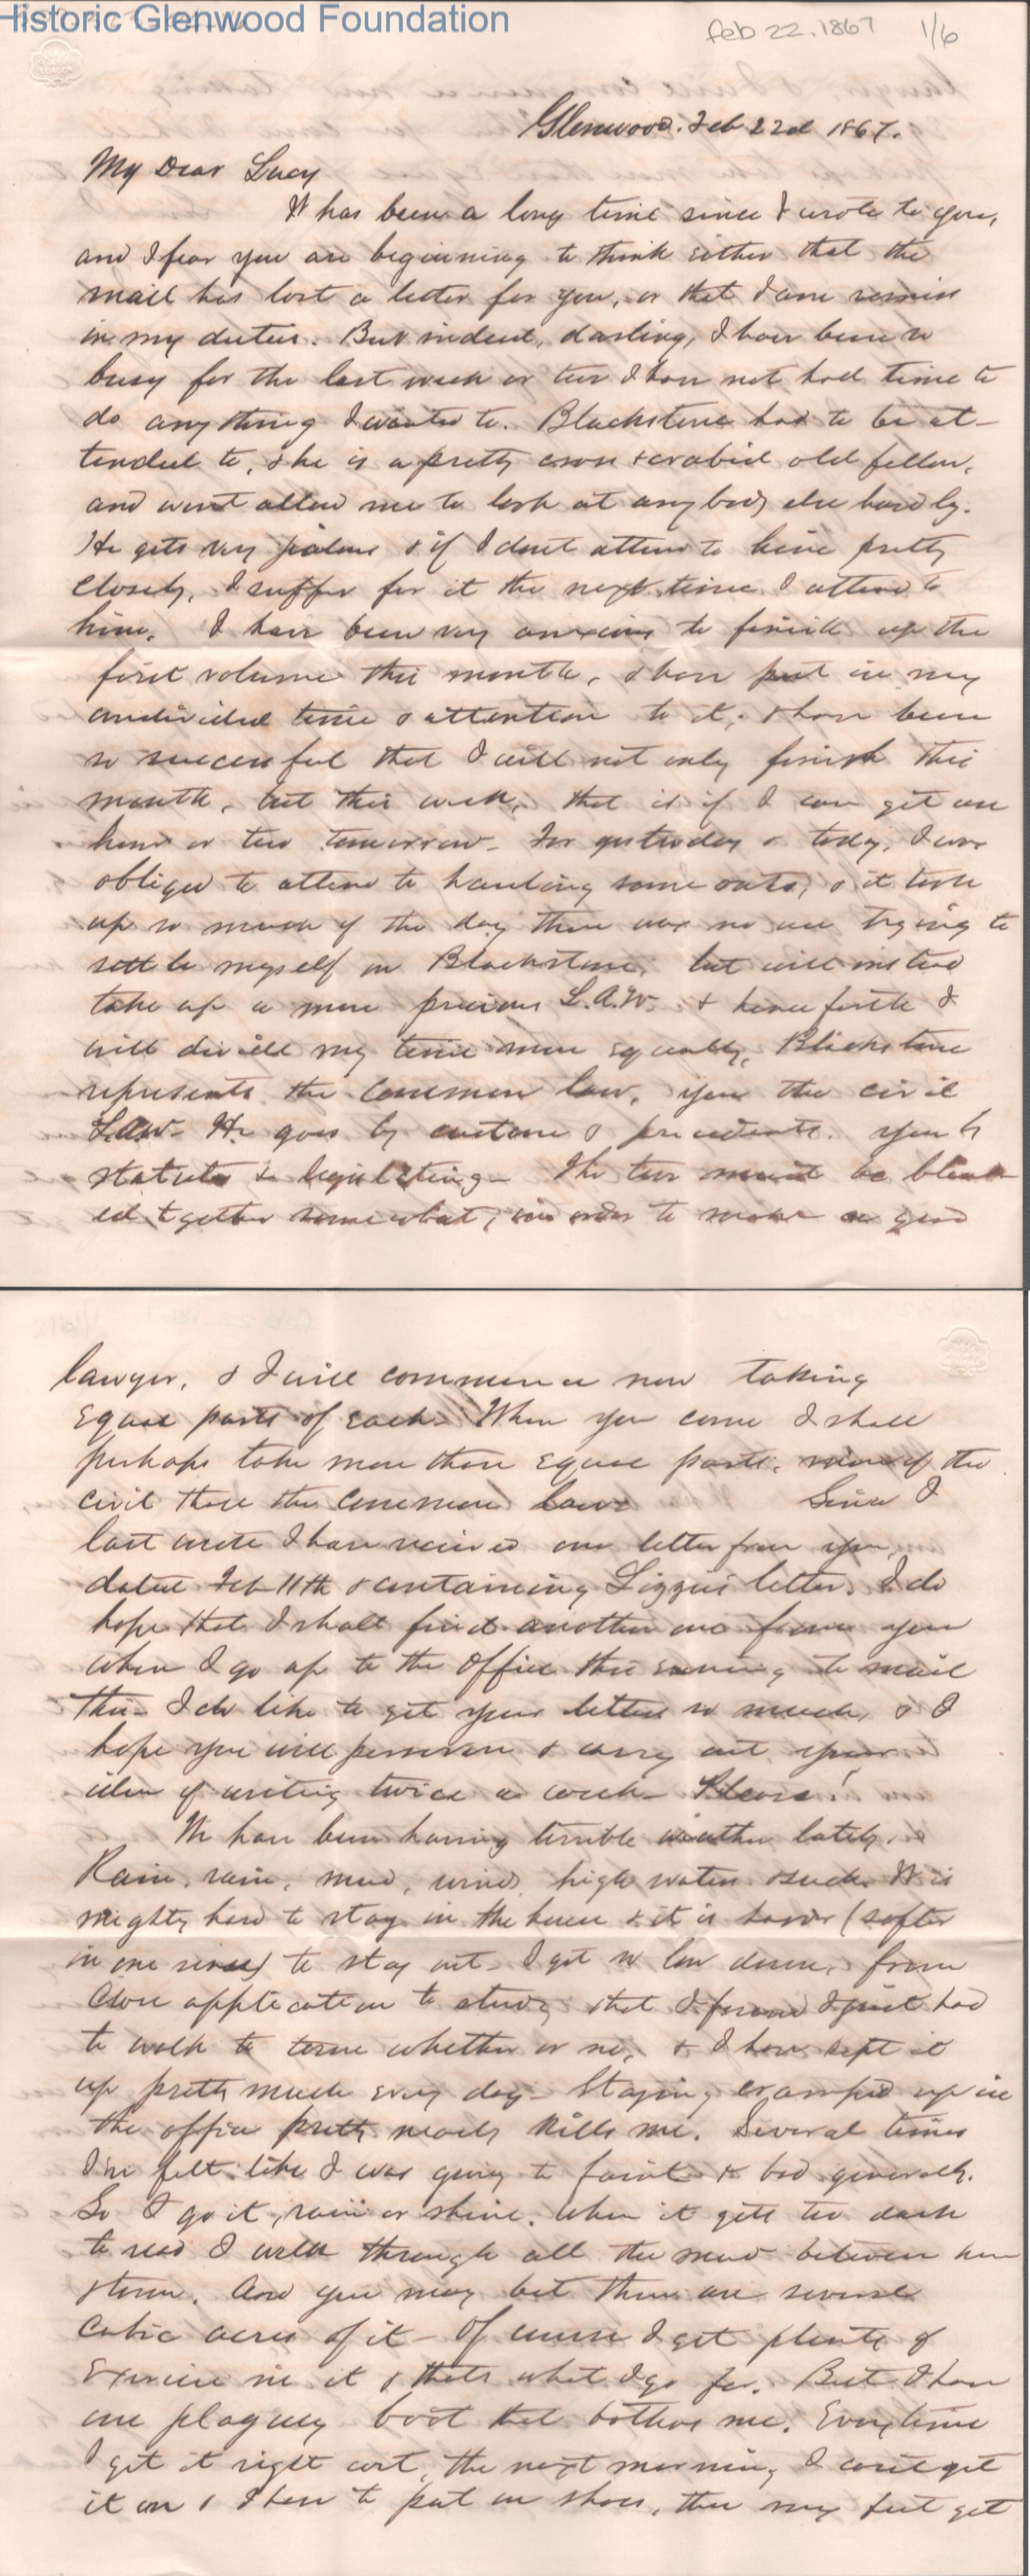 Historic Glenwood Foundation
Feb 22. 1867 1/6
Glenwood. Feb 22d 1867.
My Dear Lucy
It has been a long time since I wrote to you,
and I fear you are beginning to think either that the
mail has lost a letter for you, or that I am remiss
in my duties. But indeed, darling, I have been so
busy for the last week or two I have not had time to
do anything I wanted to. Blackstone had to be at-
tended to, & he is a pretty cross & crabid old fellow,
and wont allow me to look at anybody else hardly.
He gets very jealous & if I dont attend to him pretty
closely, I suffer for it the next time I attend to
him. I have been very anxious to finish up the
first volume this month, & have put in my
undivided time & attention to it, & have been
so successful that I will not only finish this
month, but this week, that is if I can get an
hour or two tomorrow. For yesterday & today, I was
obliged to attend to hauling some oats, & it took
up so much of the day there was no use trying to
settle myself in Blackstone, but will instead
take up a more precious L.A.W. & henceforth I
will divide my time more equally. Blackstone
represents the Common law, you the civil
Law. He goes by customs & precedents. You by
statutes & legislating. The two must be blend
ed together somewhat, in order to make a good
lawyer, & I will commence now taking
equal parts of each. When you come I shall
perhaps take more than equal parts, more of the
civil than the Common law. Since I
last wrote I have received one letter from you,
dated Feb 11th & containing Lizzie's letter. I do
hope that I shall find another one from you
when I go up to the office this evening to mail
this. I do like to get your letters so much, & I
hope you will persevere & carry out your
idea of writing twice a week. Please!
We have been having terrible weather lately.
Rain, rain, mud, wind, high water & such. It is
mighty hard to stay in the house & it is harder (softer
in one sense) to stay out. I got so low down, from
close application to study that I found I just had
to walk to town whether or no, & I have kept it
up pretty much every day. Staying cramped up in
the office pretty nearly kills me. Several times
I've felt like I was going to faint & bad generally.
So I go it, rain or shine. When it gets too dark
to read I walk through all the mud between here
& town. And you may bet there are several
cubic acres of it. Of course I get plenty of
exercise in it & thats what I go for. But I have
one plaguey boot that bothers me. Every time
I get it right wet, the next morning I cant get
it on & I have to put on shoes, then my feet get